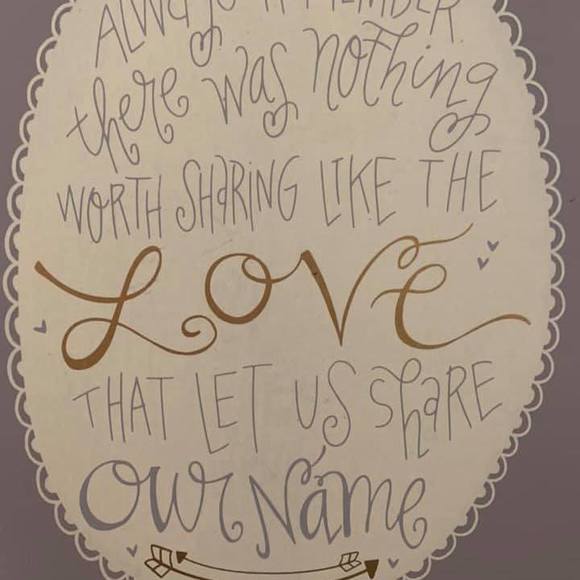 ALWAYS REMEMBER
there was nothing
WORTH SHARING LIKE THE
LOVE
THAT LET US SHARE
OUR Name